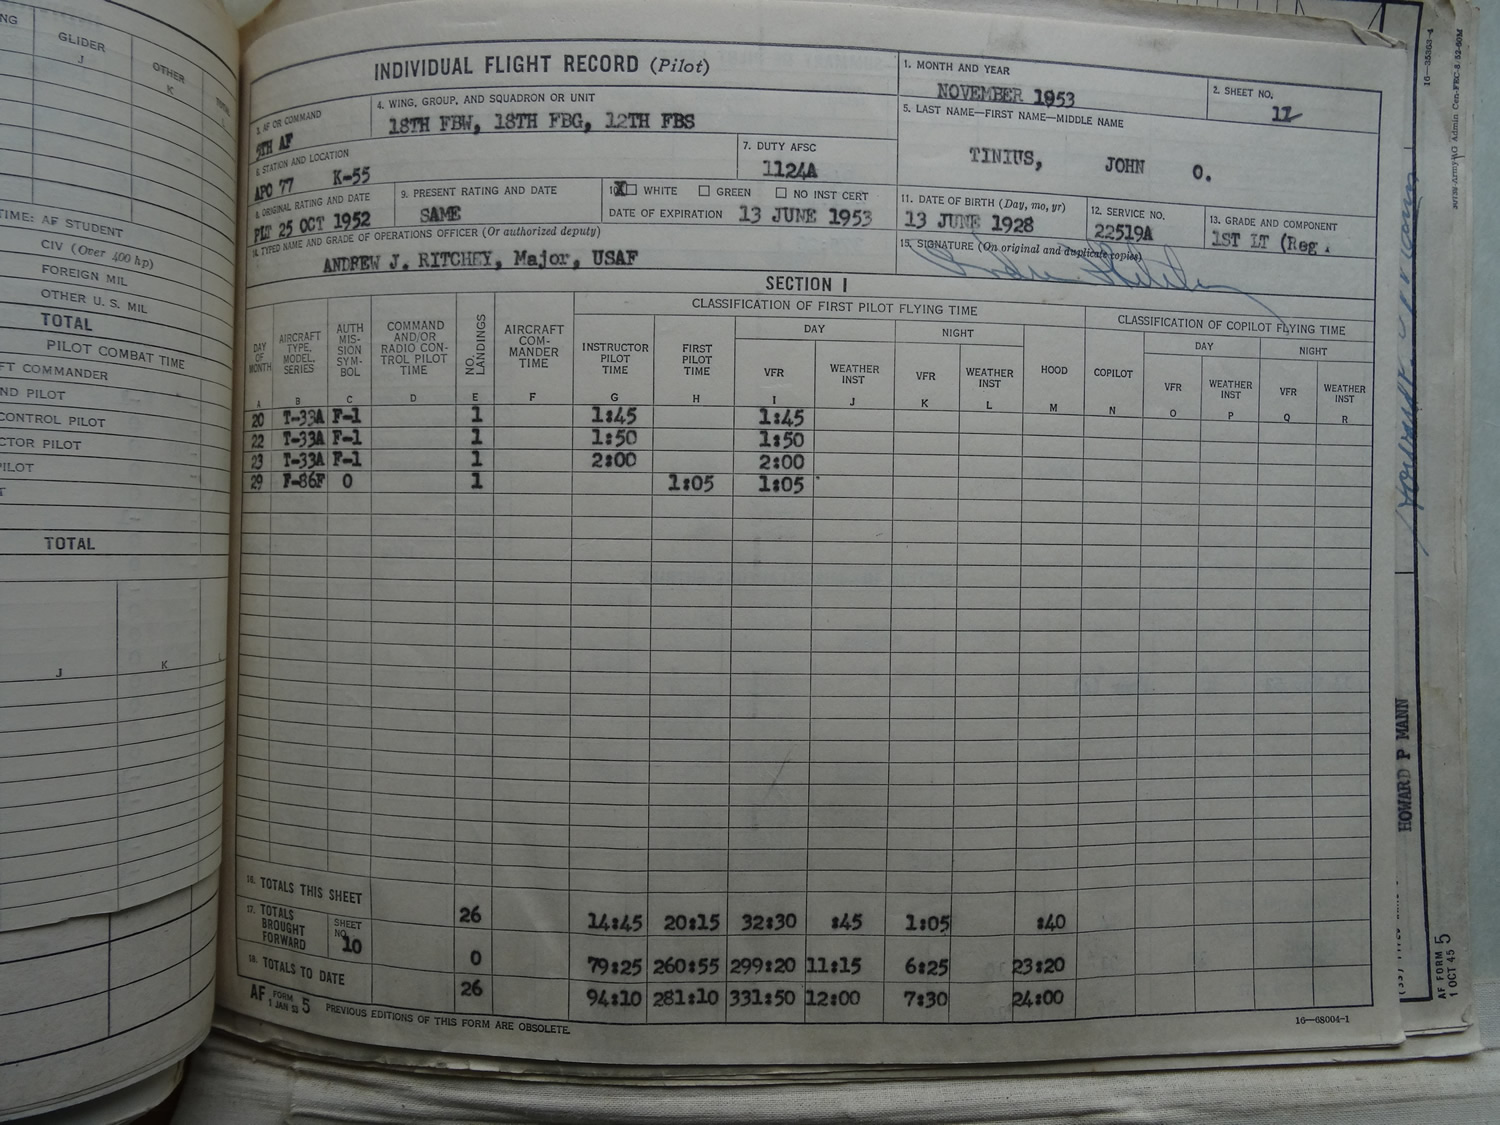 INDIVIDUAL FLIGHT RECORD (Pilot)
1. MONTH AND YEAR
NOVEMBER 1953
2. SHEET NO.
11
3. AF OR COMMAND
5TH AF
4. WING, GROUP, AND SQUADRON OR UNIT
18TH FBW, 18TH FBG, 12TH FBS
5. LAST NAME—FIRST NAME—MIDDLE NAME
TINIUS, JOHN O.
6. STATION AND LOCATION
APO 77 K-55
7. DUTY AFSC
1124A
8. ORIGINAL RATING AND DATE
PLT 25 OCT 1952
9. PRESENT RATING AND DATE
SAME
10 X WHITE GREEN NO INST CERT
DATE OF EXPIRATION 13 JUNE 1953
11. DATE OF BIRTH (Day, mo, yr)
13 JUNE 1928
12. SERVICE NO.
22519A
13. GRADE AND COMPONENT
1ST LT (Reg.
14. TYPED NAME AND GRADE OF OPERATIONS OFFICER (Or authorized deputy)
ANDREW J. RITCHEY, Major, USAF
15. SIGNATURE (On original and duplicate copies)
SECTION I
CLASSIFICATION OF FIRST PILOT FLYING TIME
CLASSIFICATION OF COPILOT FLYING TIME
DAY NIGHT DAY NIGHT
DAY OF MONTH
AIRCRAFT TYPE, MODEL, SERIES
AUTH MIS- SION SYM- BOL
COMMAND AND/OR RADIO CON- TROL PILOT TIME
NO. LANDINGS
AIRCRAFT COM- MANDER TIME
INSTRUCTOR PILOT TIME
FIRST PILOT TIME
VFR
WEATHER INST
VFR
WEATHER INST
HOOD
COPILOT
VFR
WEATHER INST
VFR
WEATHER INST
A B C D E F G H I J K L M N O P Q R
20 T-33A F-1 1 1:45 1:45
22 T-33A F-1 1 1:50 1:50
23 T-33A F-1 1 2:00 2:00
29 F-86F 0 1 1:05 1:05
16. TOTALS THIS SHEET 26 14:45 20:15 32:30 :45 1:05 :40
17. TOTALS BROUGHT FORWARD SHEET NO. 10 0 79:25 260:55 299:20 11:15 6:25 23:20
18. TOTALS TO DATE 26 94:10 281:10 331:50 12:00 7:30 24:00
AF FORM 1 JAN 53 5 PREVIOUS EDITIONS OF THIS FORM ARE OBSOLETE.
16—68004-1
GLIDER
J
OTHER
K
TIME: AF STUDENT
CIV (Over 400 hp)
FOREIGN MIL
OTHER U. S. MIL
TOTAL
PILOT COMBAT TIME
FT COMMANDER
ND PILOT
CONTROL PILOT
CTOR PILOT
PILOT
TOTAL
J K L
16—35363-4
HOWARD P MANN
AF FORM 5
1 OCT 45